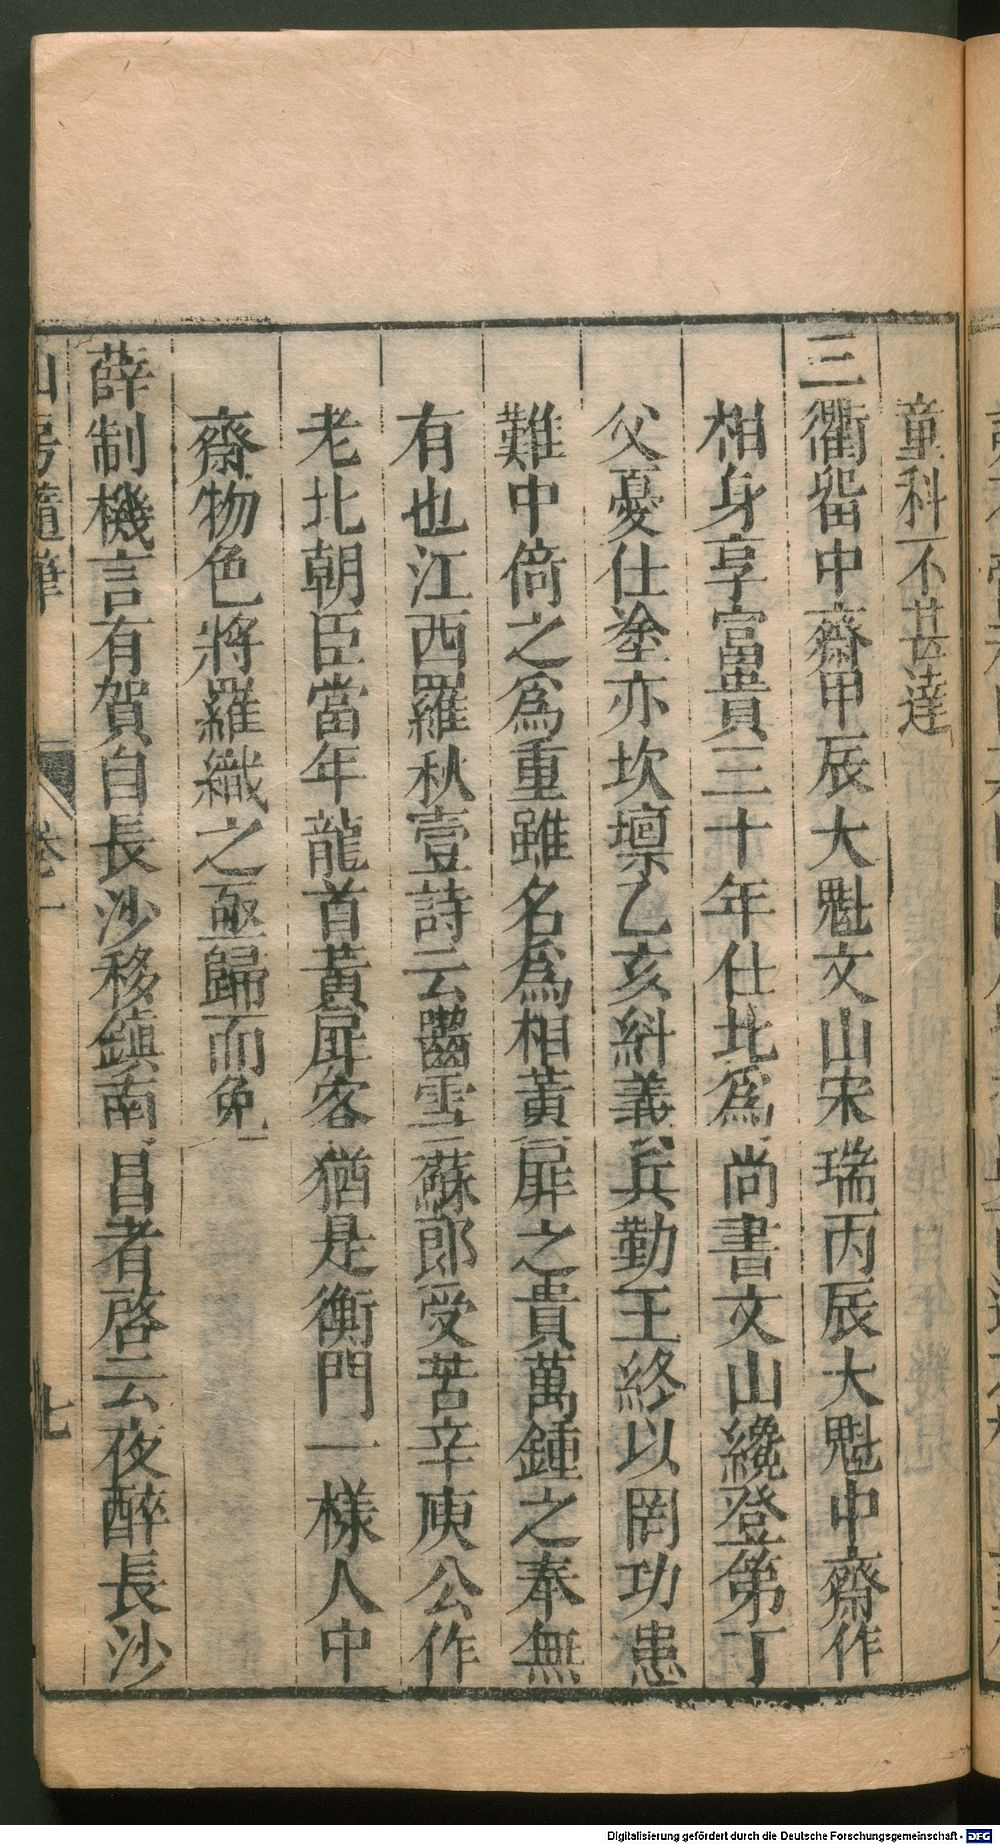 童科不甚達
三衢留中齋甲辰大魁文山宋瑞丙辰大魁中齋作
相身享富貴三十年仕北爲尚書文山纔登第丁
父憂仕塗亦坎壈乙亥糾義兵勤王終以罔功患
難中倚之爲重雖名爲相黃扉之貴萬鍾之奉無
有也江西羅秋壹詩云齧雪蘇郎受苦辛庾公作
老北朝臣當年龍首黃扉客猶是衡門一樣人中
齋物色將羅織之亟歸而免
薛制機言有賀自長沙移鎮南昌者啓云夜醉長沙
山房隨筆 卷一 七
Digitalisierung gefördert durch die Deutsche Forschungsgemeinschaft - DFG